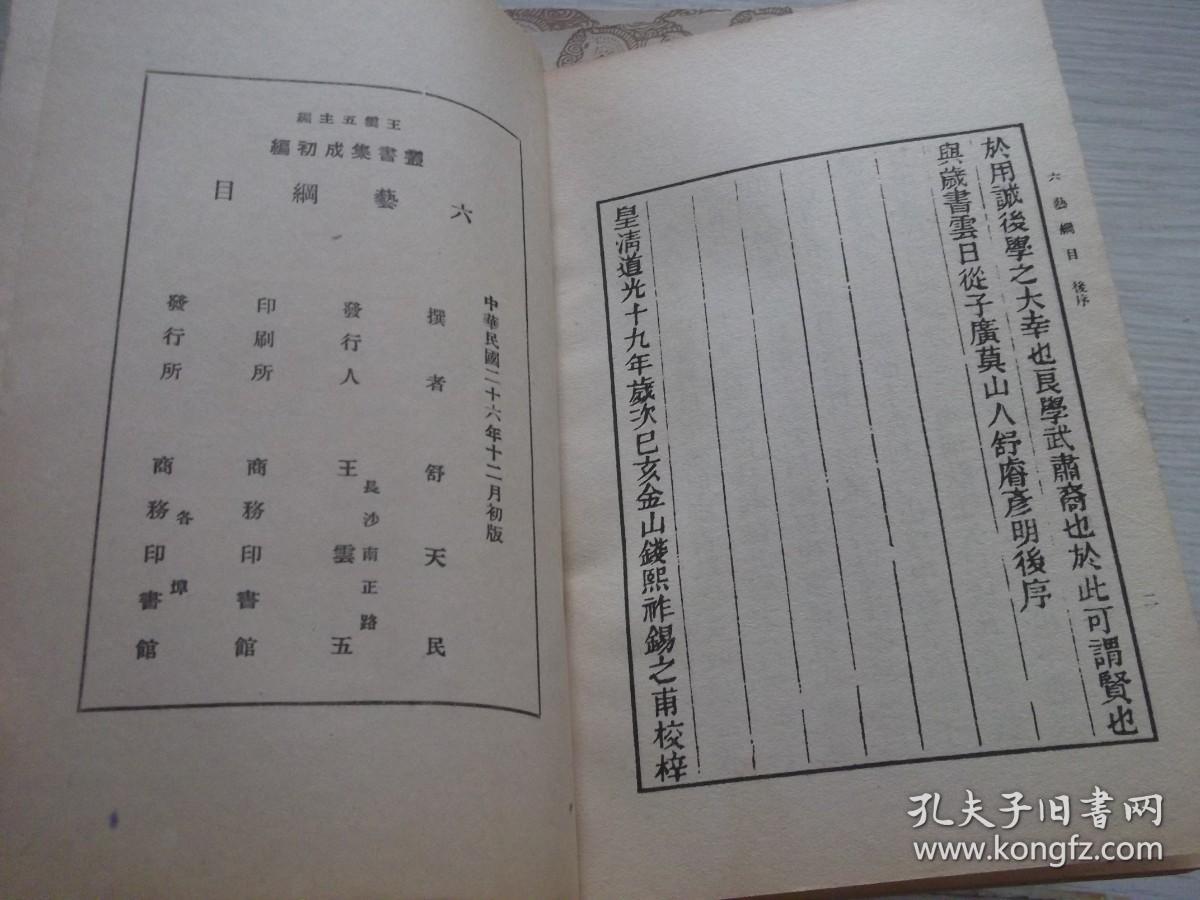 六藝綱目 後序
二
於用誠後學之大幸也良學武肅裔也於此可謂賢也
與歲書雲日從子廣莫山人舒睿彥明後序
皇清道光十九年歲次己亥金山錢熙祚錫之甫校梓
王雲五主編
叢書集成初編
六藝綱目
中華民國二十六年十二月初版
撰者 舒天民
發行人 王雲五
長沙南正路
印刷所 商務印書館
發行所 商務印書館
各埠
孔夫子旧书网
www.kongfz.com